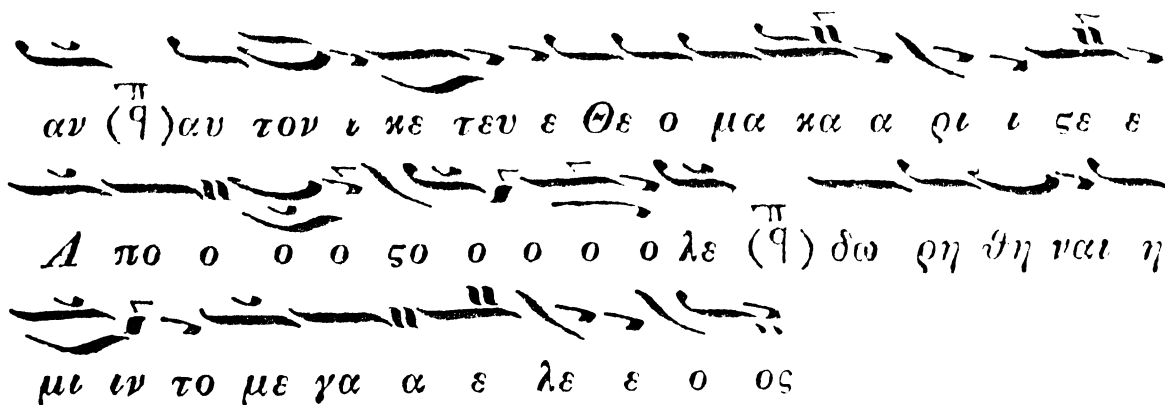 αν (π̅ q) αυ τον ι κε τευ ε Θε ο μα κα α ρι ι ϛε ε
Α πο ο ο ο ϛο ο ο ο ο λε (π̅ q) δω ρη θη ναι η
μι ιν το με γα α ε λε ε ο ος